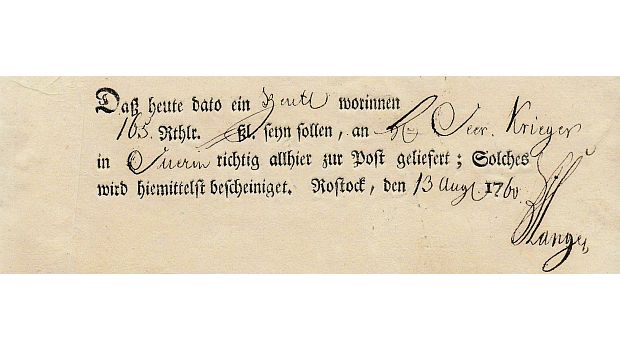 Daß heute dato ein Beutl worinnen
165. Rthlr. ßl. seyn sollen, an H. Secr. Krieger
in Suerin richtig allhier zur Post geliefert; Solches
wird hiemittelst bescheiniget. Rostock, den 13 Aug. 1760
Lange,